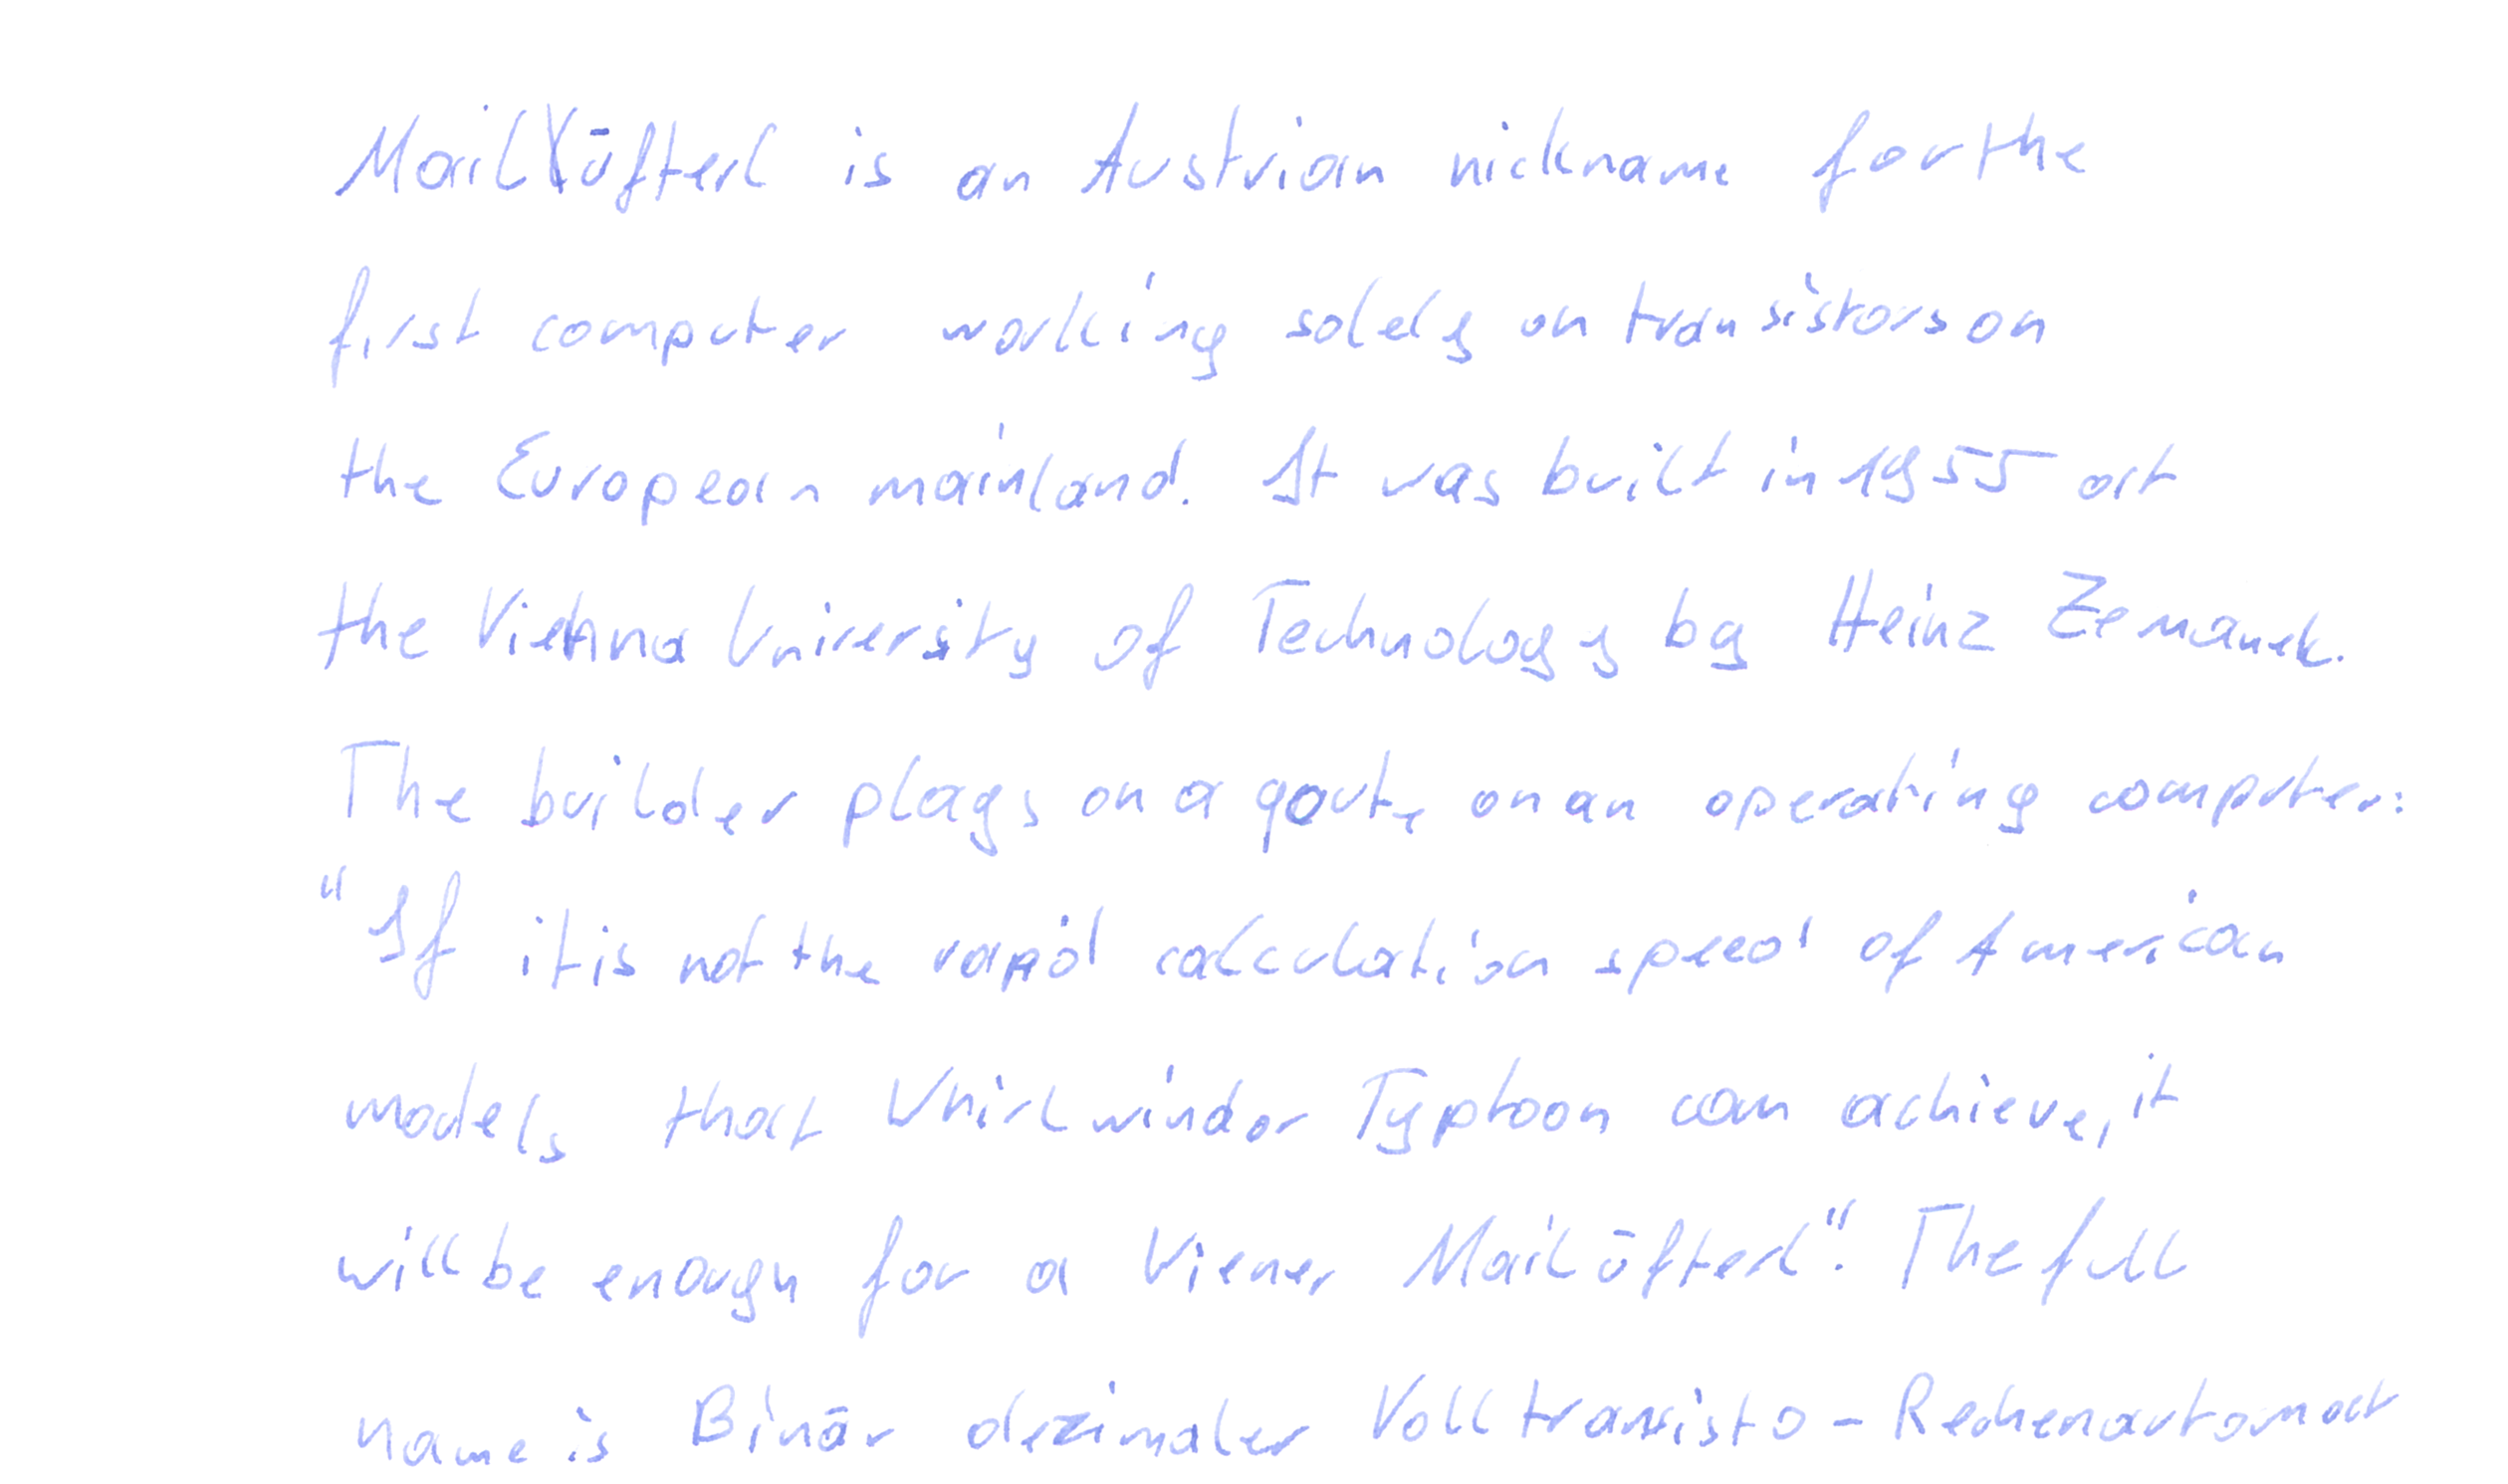 Mailüfterl is an Austrian nickname for the
first computer working solely on transistors on
the European mainland. It was built in 1955 at
the Vienna University of Technology by Heinz Zemanek.
The builder plays on a qoute on an operating computer:
"If it is not the rapid calculation speed of American
models that Whirlwind or Typhoon can achieve, it
will be enough for a Wiener Mailüfterl". The full
name is Binär dezimaler Volltransisto-Rechenautomat